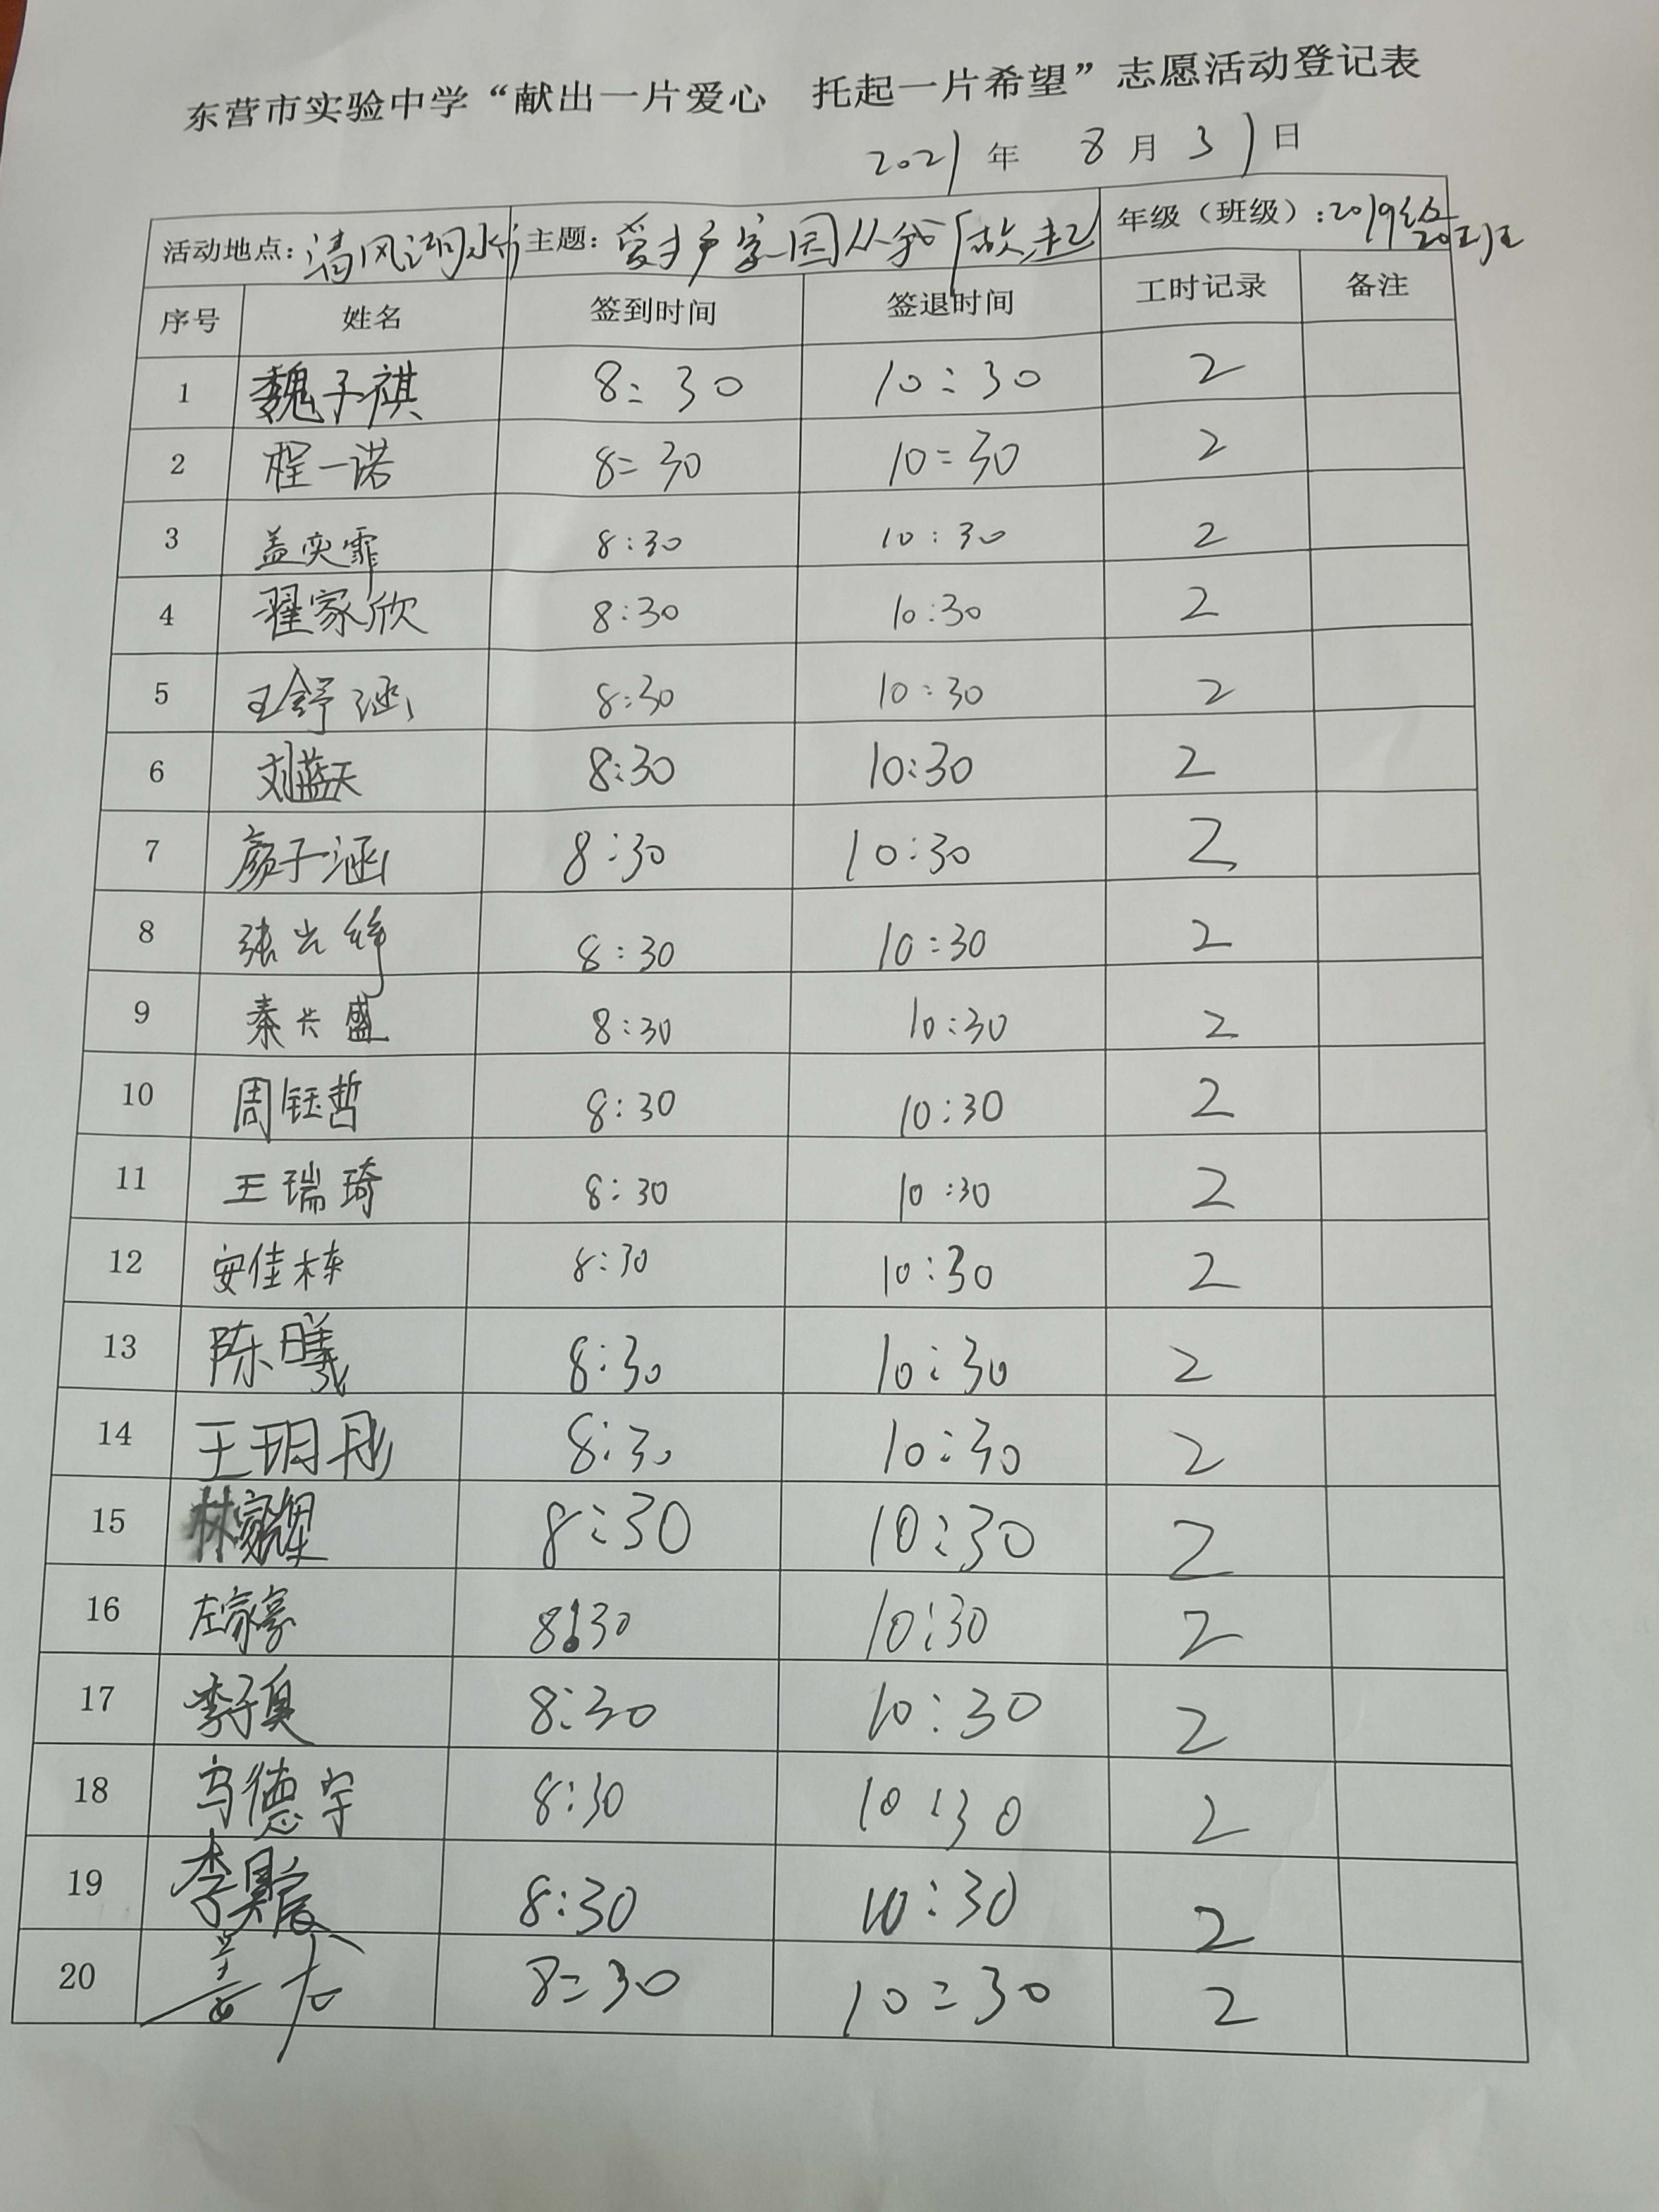 东营市实验中学“献出一片爱心 托起一片希望”志愿活动登记表
2021年 8月31日
活动地点：清风湖水 主题：爱护家园从我做起 年级（班级）：2019级20班
序号 姓名 签到时间 签退时间 工时记录 备注
1 魏子祺 8:30 10:30 2
2 程一诺 8:30 10:30 2
3 盖奕霏 8:30 10:30 2
4 翟家欣 8:30 10:30 2
5 王舒涵 8:30 10:30 2
6 刘蓝天 8:30 10:30 2
7 颜子涵 8:30 10:30 2
8 张 8:30 10:30 2
9 秦兴盛 8:30 10:30 2
10 周钰哲 8:30 10:30 2
11 王瑞琦 8:30 10:30 2
12 安佳栋 8:30 10:30 2
13 陈曦 8:30 10:30 2
14 王玥彤 8:30 10:30 2
15 林家耀 8:30 10:30 2
16 左家豪 8:30 10:30 2
17 李子奥 8:30 10:30 2
18 德宇 8:30 10:30 2
19 李昊宸 8:30 10:30 2
20 8:30 10:30 2